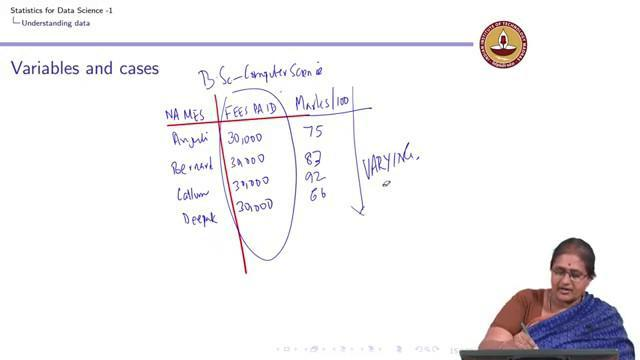 Statistics for Data Science -1
Understanding data
Variables and cases
B.Sc - Computer Science
NAMES FEES PAID Marks/100
Anjali 30,000 75
Bernard 30,000 83
Callum 30,000 92
Deepak 30,000 66
VARYING.